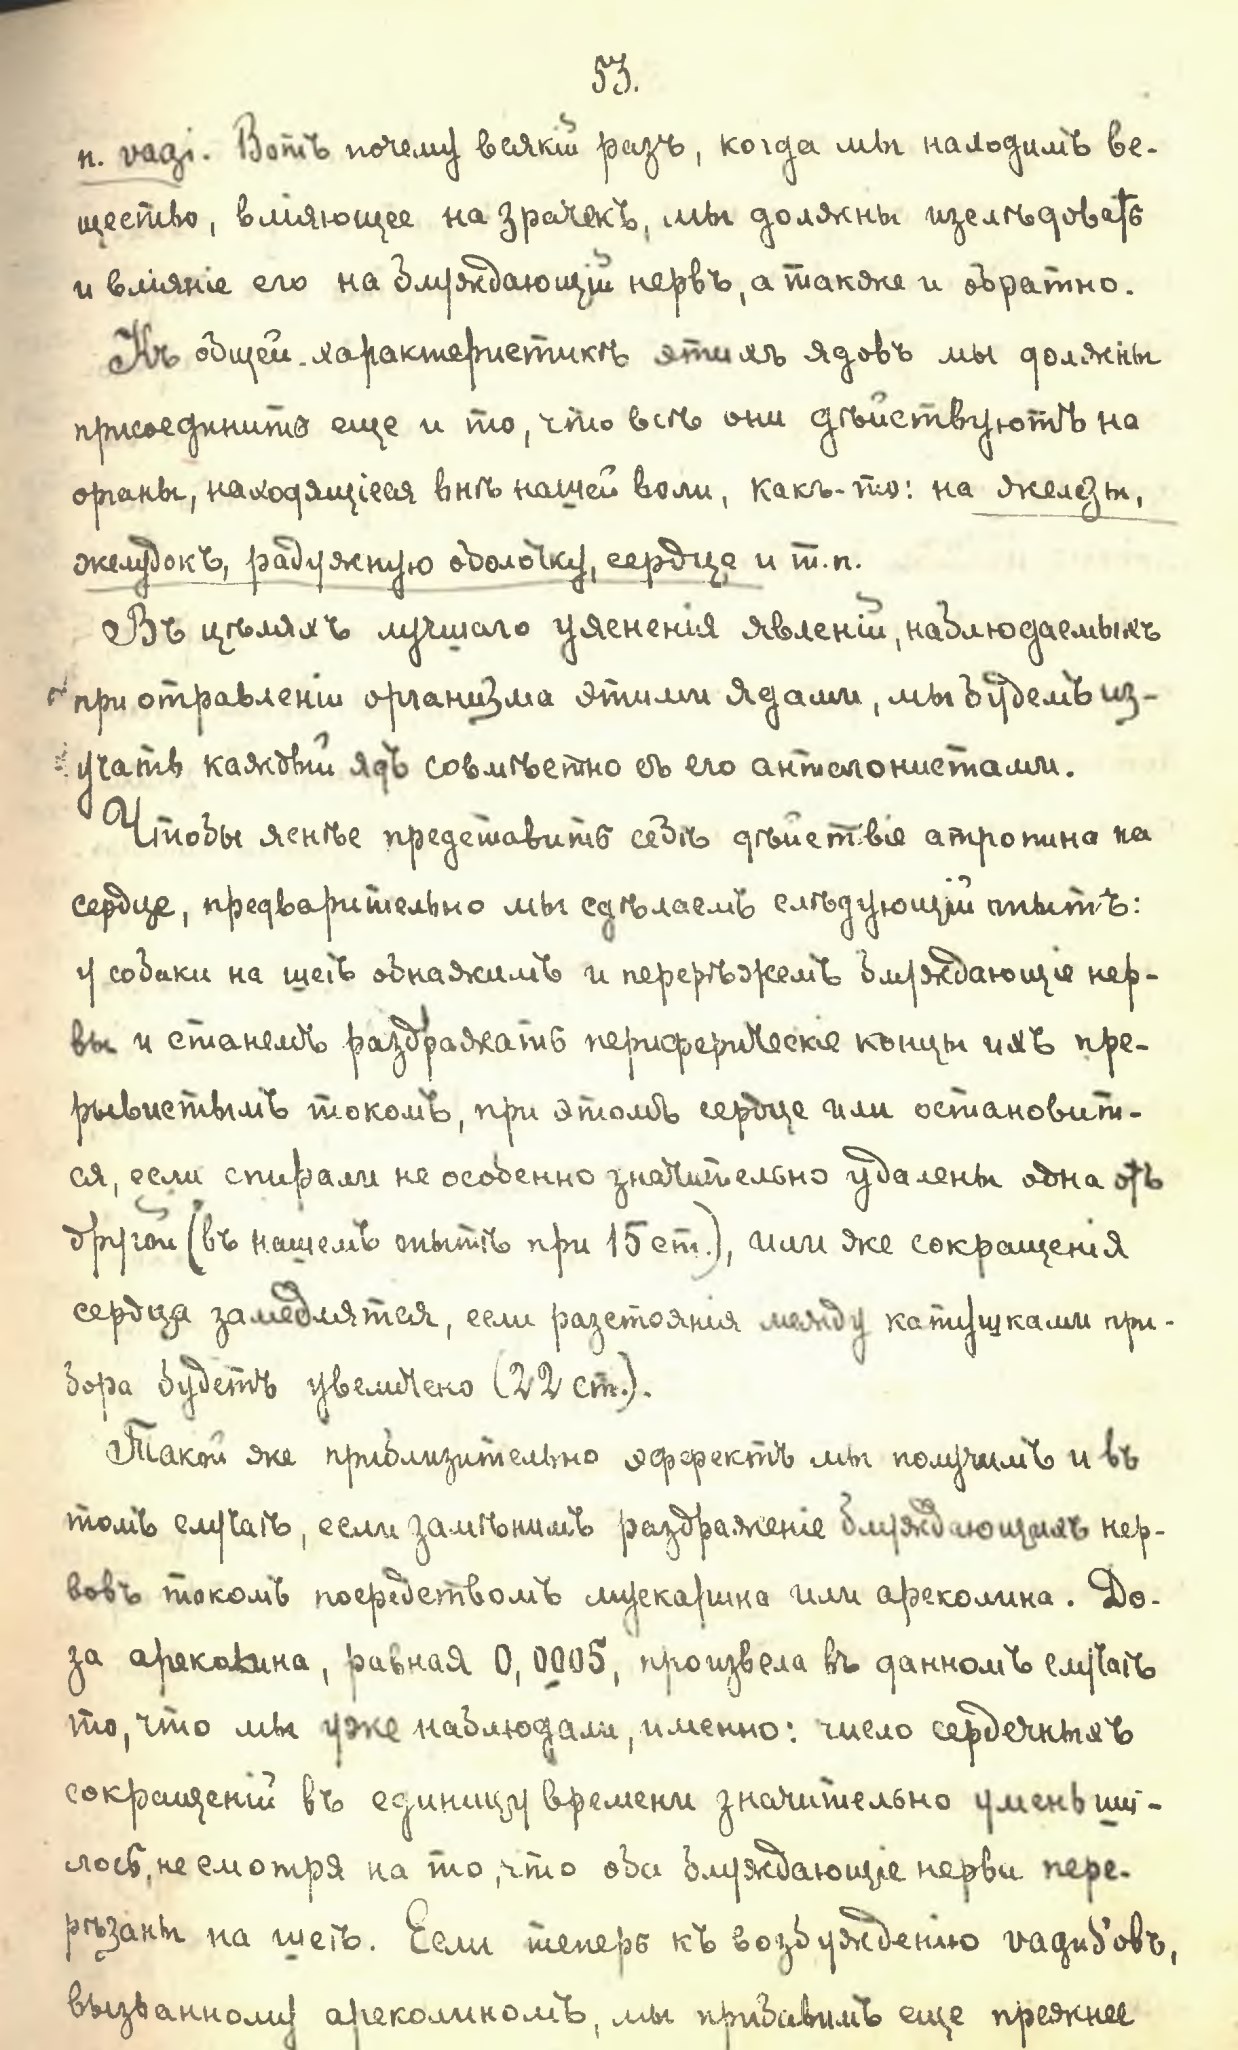 53.
n. vagi. Вотъ почему всякій разъ, когда мы находимъ ве-
щество, вліяющее на зрачекъ, мы должны изслѣдовать
и вліяніе его на блуждающій нервъ, а также и обратно.
Къ общей характеристикѣ этихъ ядовъ мы должны
присоединить еще и то, что всѣ они дѣйствуютъ на
органы, находящіеся внѣ нашей воли, какъ-то: на железы,
желудокъ, радужную оболочку, сердце и т.п.
Въ цѣляхъ лучшаго уясненія явленій, наблюдаемыхъ
при отравленіи организма этими ядами, мы будемъ из-
учать каждый ядъ совмѣстно съ его антагонистами.
Чтобы яснѣе представить себѣ дѣйствіе атропина на
сердце, предварительно мы сдѣлаемъ слѣдующій опытъ:
у собаки на шеѣ обнажимъ и перерѣжемъ блуждающіе нер-
вы и станемъ раздражать периферическіе концы ихъ пре-
рывистымъ токомъ, при этомъ сердце или остановит-
ся, если спирали не особенно значительно удалены одна отъ
другой (въ нашемъ опытѣ при 15 ст.), или же сокращенія
сердца замедлятся, если разстоянія между катушками при-
бора будетъ увеличено (22 ст.).
Такой же приблизительно эффектъ мы получимъ и въ
томъ случаѣ, если замѣнимъ раздраженіе блуждающихъ нер-
вовъ токомъ посредствомъ мускарина или ареколина. До-
за ареколина, равная 0,0005, произвела въ данномъ случаѣ
то, что мы уже наблюдали, именно: число сердечныхъ
сокращеній въ единицу времени значительно уменьши-
лось, не смотря на то, что оба блуждающіе нерва пере-
рѣзаны на шеѣ. Если теперь къ возбужденію vagus'овъ,
вызванному ареколиномъ, мы прибавимъ еще прежнее